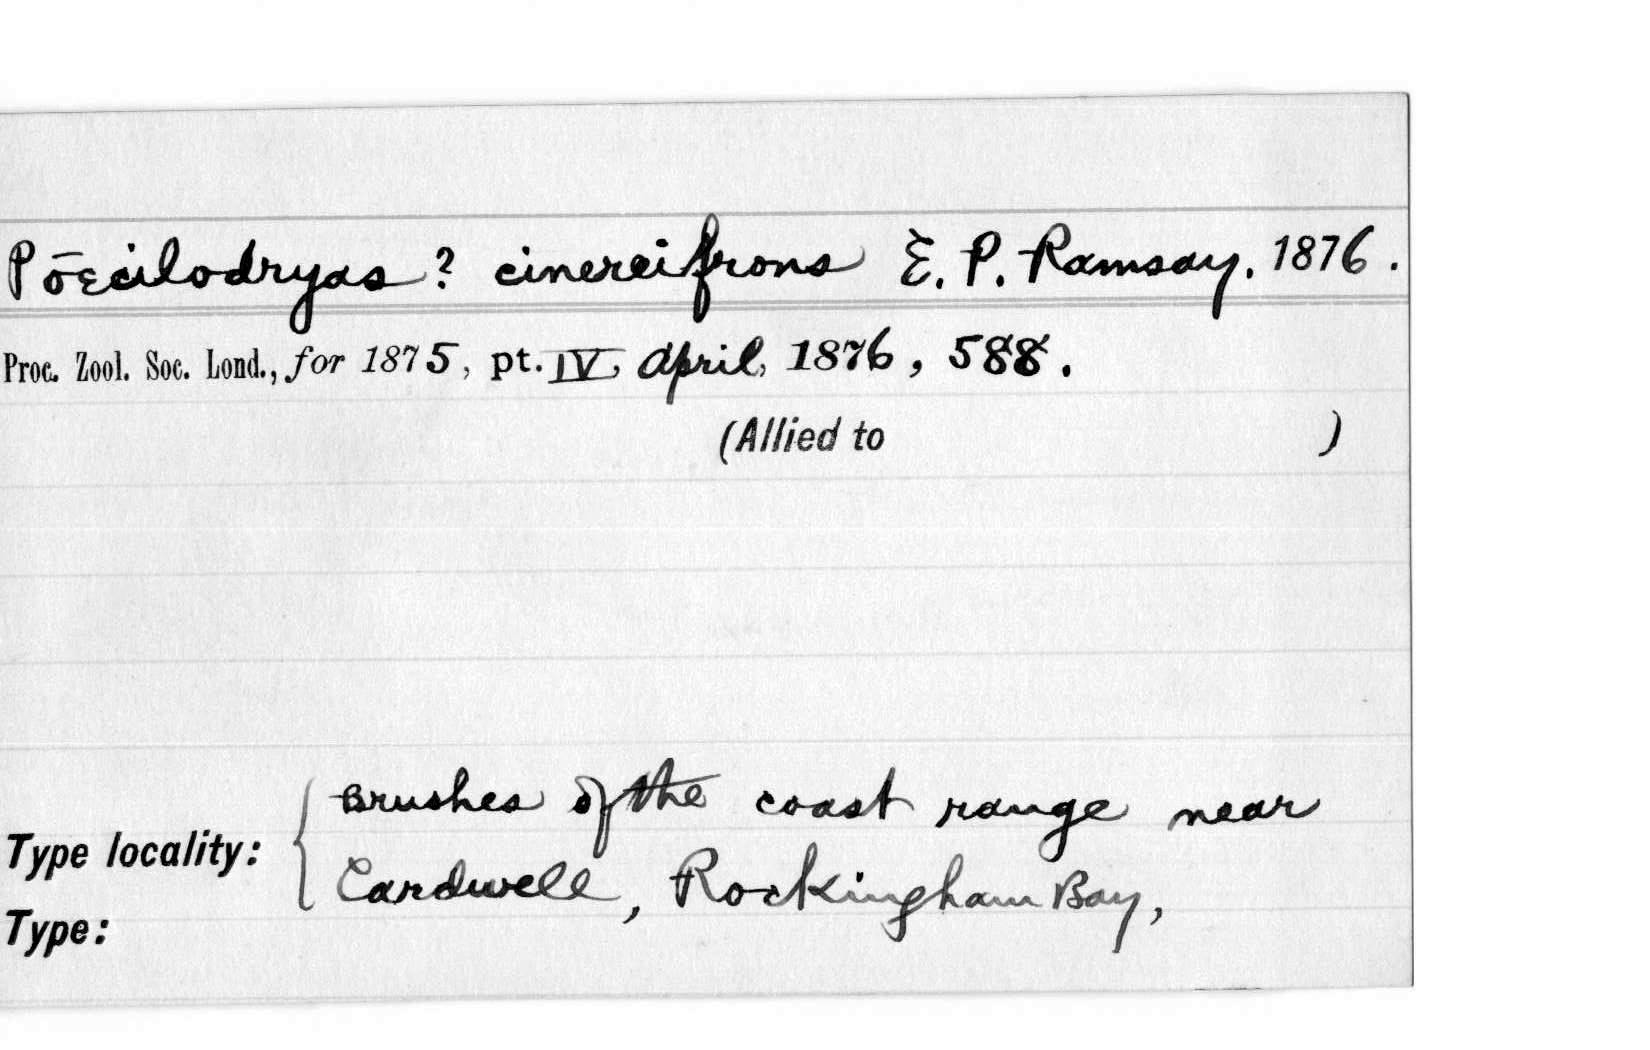 Pōecilodryas ? cinereifrons E. P. Ramsay. 1876.
Proc. Zool. Soc. Lond., for 1875, pt. IV, April, 1876, 588.
(Allied to )
Brushes of the coast range near
Type locality:
Cardwell, Rockingham Bay,
Type: